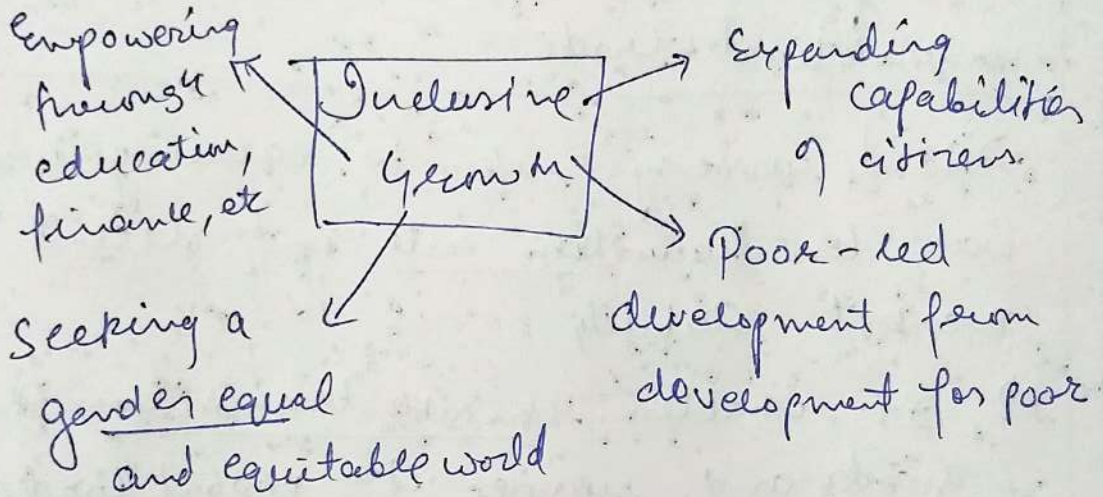 Empowering
through
education,
finance, etc
Inclusive
Growth
Expanding
capabilities
of citizens.
Poor-led
development from
development for poor
Seeking a
gender equal
and equitable world